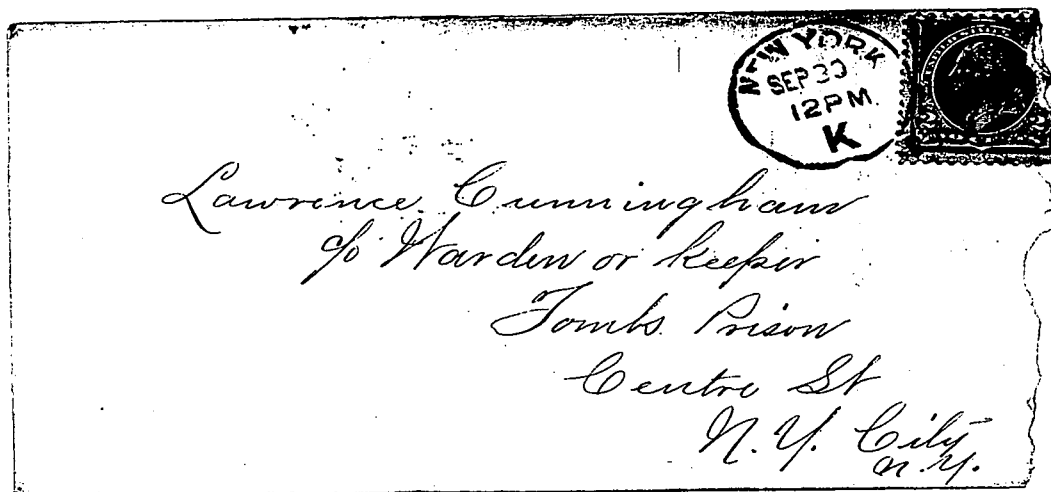 NEW YORK
SEP 30
12PM
K
Lawrence Cunningham
c/o Warden or Keeper
Tombs Prison
Centre St
N.Y. City
N.Y.